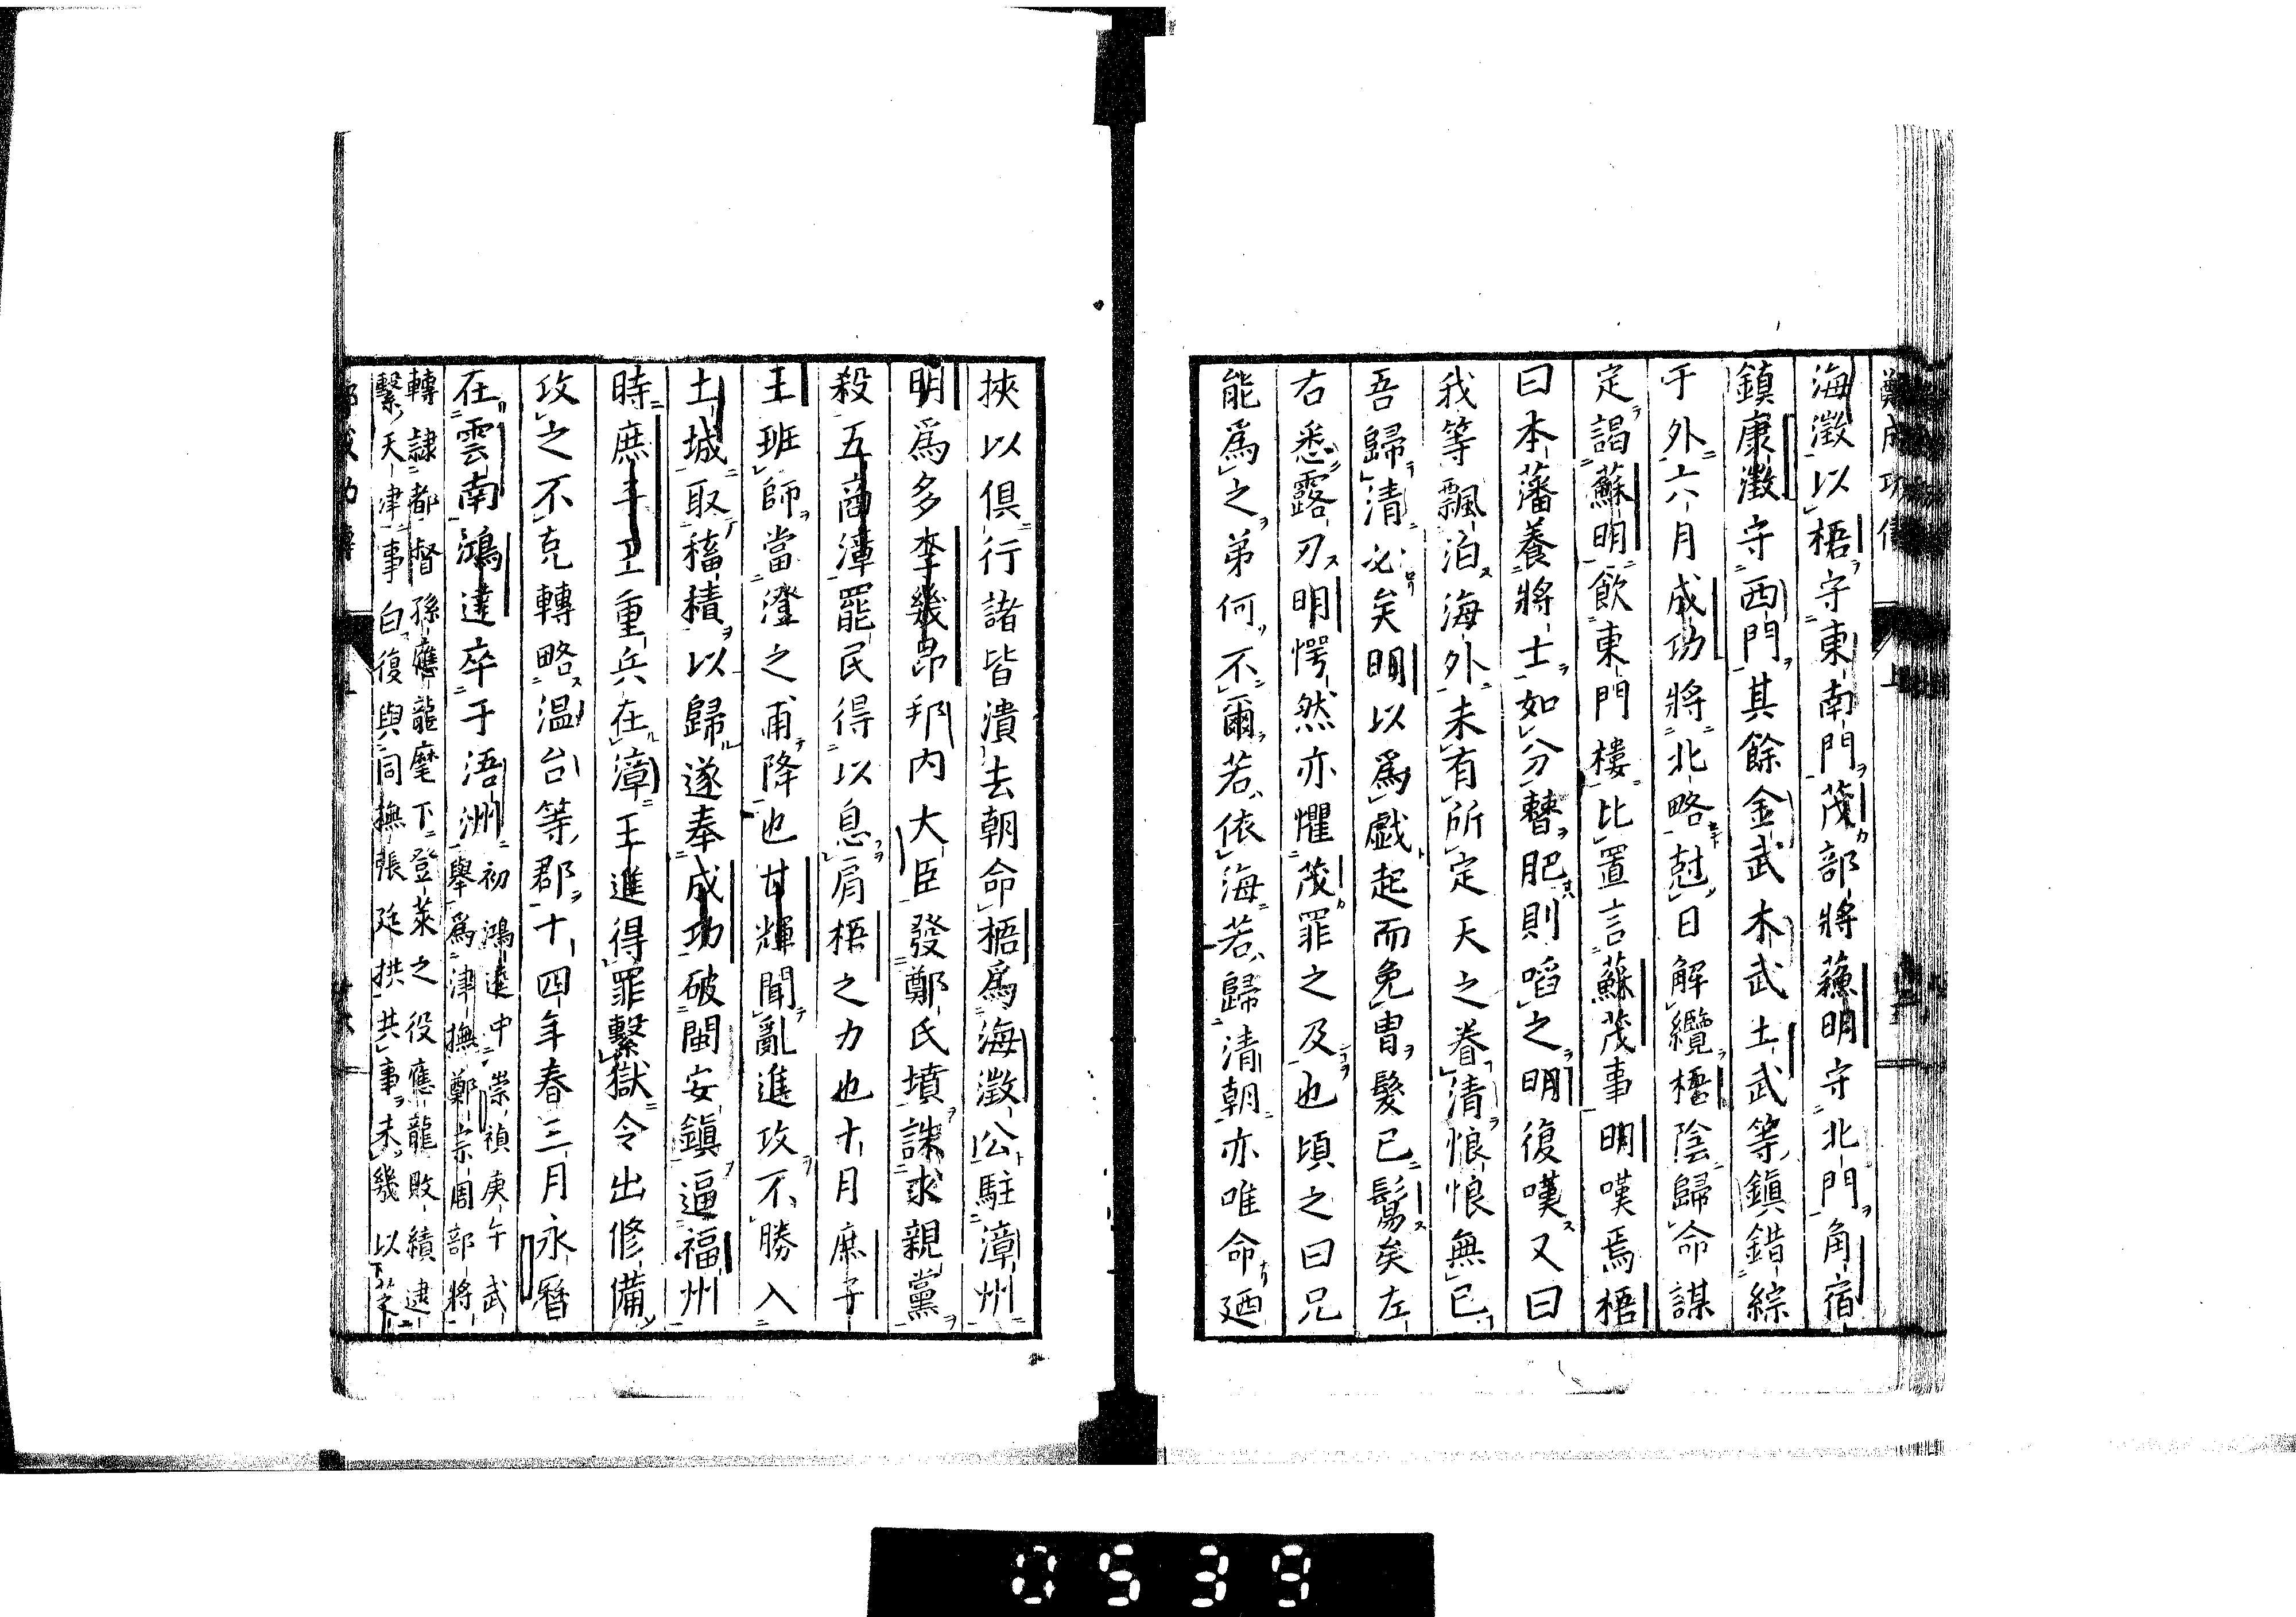 鄭成功傳 上
海澂以梧守東南門茂部將蘓明守北門角宿
鎮康澂守西門其餘金武木武土武等鎮錯綜
于外六月成功將北略尅日解纜梧陰歸命謀
定謁蘇明飲東門樓比置言蘇茂事明嘆焉梧
曰本藩養將士如分瞽肥則啗之明復嘆又曰
我等飄泊海外未有所定天之眷清悢悢無已
吾歸清必矣明以爲戯起而免冑髮已鬄矣左
右悉露刃明愕然亦懼茂罪之及也頃之曰兄
能爲之弟何不爾若依海若歸清朝亦唯命廼
挾以倶行諸皆潰去朝命梧爲海澂公駐漳州
明爲多李幾昂邦内大臣發鄭氏墳誅求親黨
殺五商漳罷民得以息肩梧之力也十月庶子
王班師當澄之甫降也甘輝聞亂進攻不勝入
土城取穡積以歸遂奉成功破閩安鎮逼福州
時庶子王重兵在漳王進得罪繫獄令出修備
攻之不克轉略温台等郡十四年春三月永曆
在雲南鴻逵卒于浯洲初鴻逵中崇禎庚午武
舉爲津撫鄭宗周部將
轉隷都督孫應龍麾下登萊之役應龍敗績逮
繫天津事白復與同撫張廷拱共事未幾以下芝